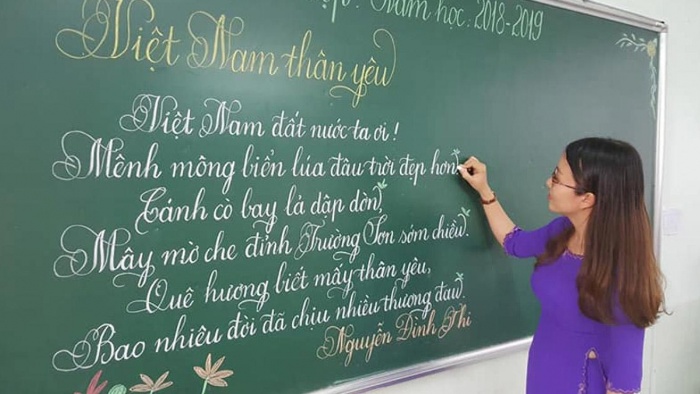 Năm học: 2018-2019
Việt Nam thân yêu
Việt Nam đất nước ta ơi!
Mênh mông biển lúa đâu trời đẹp hơn
Cánh cò bay lả dập dờn,
Mây mờ che đỉnh Trường Sơn sớm chiều.
Quê hương biết mấy thân yêu,
Bao nhiêu đời đã chịu nhiều thương đau.
Nguyễn Đình Thi